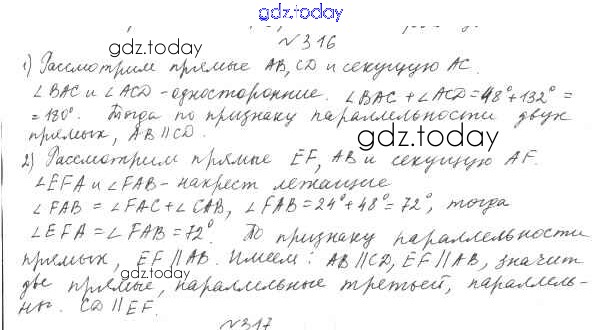 gdz.today
№316
gdz.today
1) Рассмотрим прямые AB, CD и секущую AC.
∠BAC и ∠ACD - односторонние. ∠BAC + ∠ACD = 48° + 132° =
= 180°. Тогда по признаку параллельности двух
прямых, AB ∥ CD.
gdz.today
2) Рассмотрим прямые EF, AB и секущую AF.
∠EFA и ∠FAB - накрест лежащие
∠FAB = ∠FAC + ∠CAB, ∠FAB = 24° + 48° = 72°, тогда
∠EFA = ∠FAB = 72°. По признаку параллельности
прямых, EF ∥ AB. Имеем: AB ∥ CD, EF ∥ AB, значит
gdz.today
две прямые, параллельные третьей, параллель-
ны. CD ∥ EF.
№317